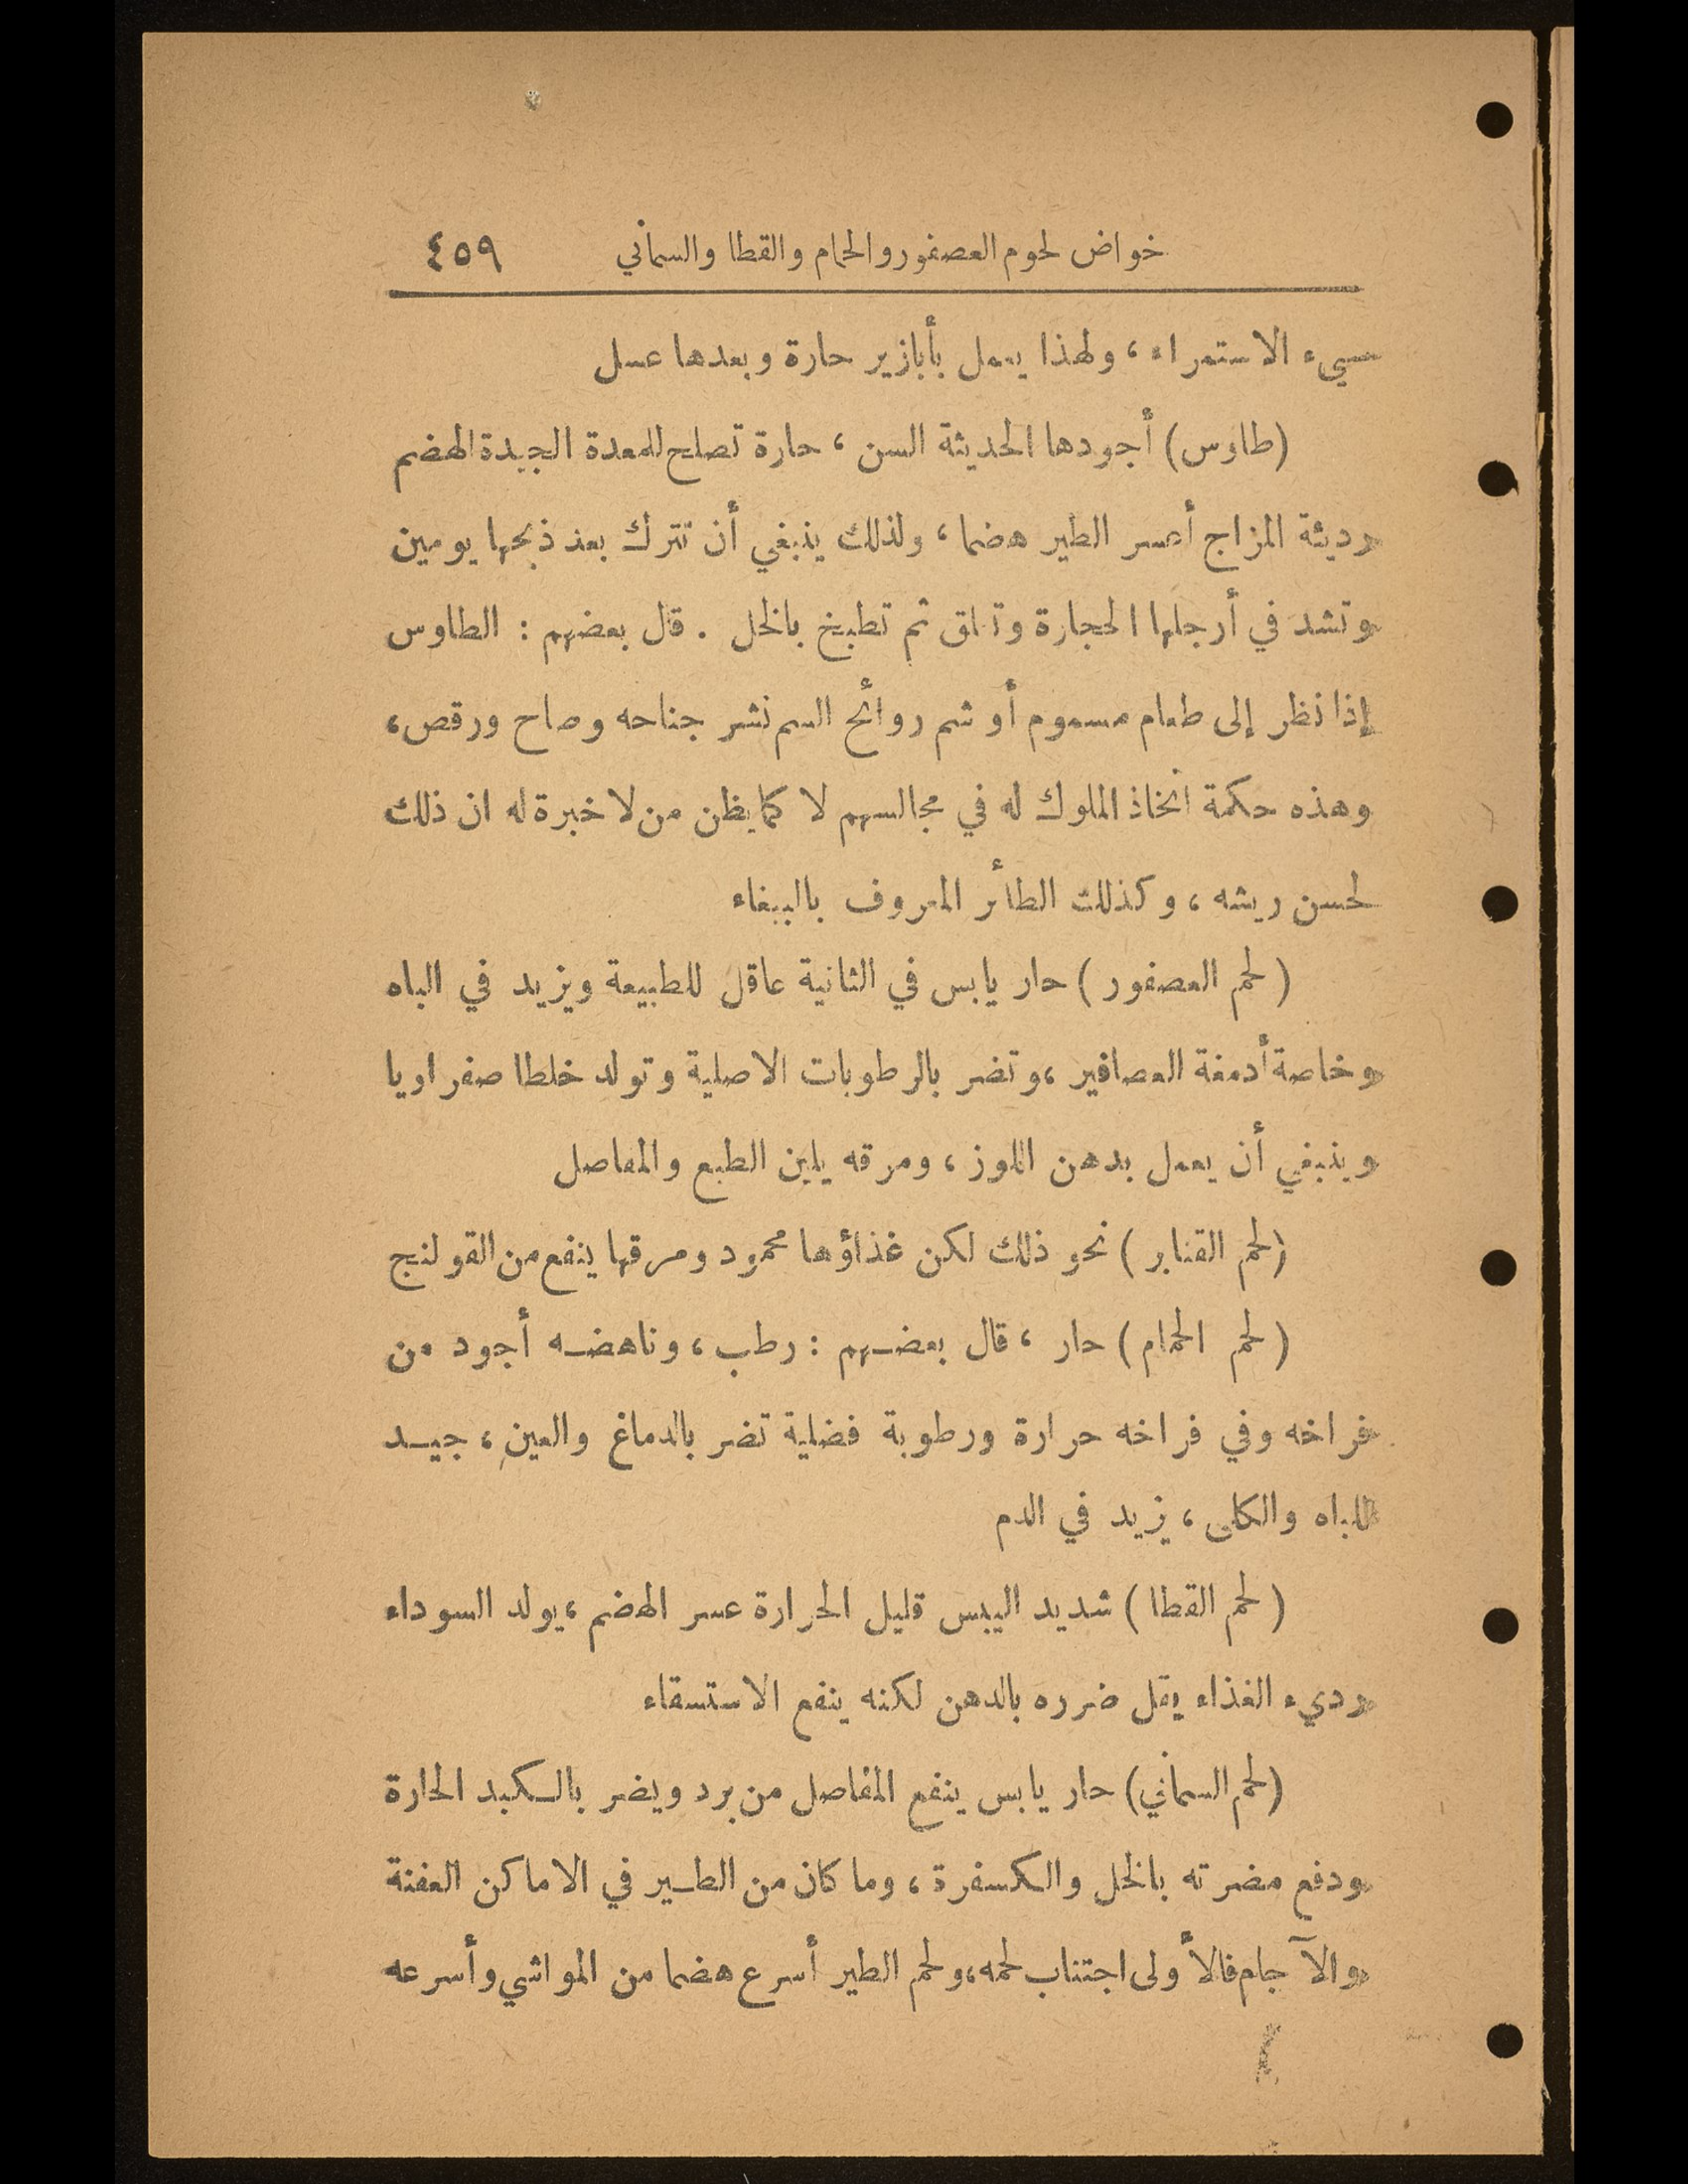 خواض لحوم العصفور والحمام والقطا والسماني ٤٥٩
سيء الاستمراء ، ولهذا يعمل بأبازير حارة وبعدها عسل
(طاوس) أجودها الحديثة السن ، حارة تصلح للمعدة الجيدة الهضم
رديئة المزاج أعسر الطير هضما ، ولذلك ينبغي أن تترك بعد ذبحها يومين
وتشد في أرجلها الحجارة وتعلق ثم تطبخ بالخل . قال بعضهم : الطاوس
إذا نظر إلى طعام مسموم أو شم روائح السم نشر جناحه وصاح ورقص ،
وهذه حكمة اتخاذ الملوك له في مجالسهم لا كما يظن من لا خبرة له ان ذلك
لحسن ريشه ، وكذلك الطائر المعروف بالببغاء
( لحم العصفور ) حار يابس في الثانية عاقل للطبيعة ويزيد في الباه
وخاصة أدمغة العصافير ، وتضر بالرطوبات الاصلية وتولد خلطا صفراويا
وينبغي أن يعمل بدهن اللوز ، ومرقه يلين الطبع والمفاصل
(لحم القنابر ) نحو ذلك لكن غذاؤها محمود ومرقها ينفع من القولنج
( لحم الحمام ) حار ، قال بعضهم : رطب ، وناهضه أجود من
فراخه وفي فراخه حرارة ورطوبة فضلية تضر بالدماغ والعين ، جيد
للباه والكلى ، يزيد في الدم
( لحم القطا ) شديد اليبس قليل الحرارة عسر الهضم ، يولد السوداء
رديء الغذاء يقل ضرره بالدهن لكنه ينفع الاستسقاء
(لحم السماني) حار يابس ينفع المفاصل من برد ويضر بالكبد الحارة
ودفع مضرته بالخل والكسفرة ، وما كان من الطير في الاماكن العفنة
والآجام فالأولى اجتناب لحمه ، ولحم الطير أسرع هضما من المواشي وأسرعه